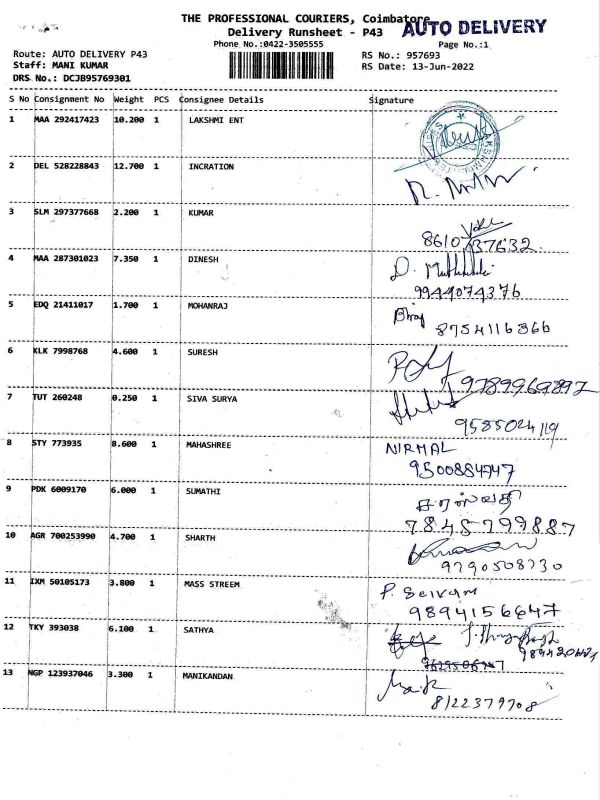 THE PROFESSIONAL COURIERS, Coimbatore
AUTO DELIVERY
Delivery Runsheet - P43
Phone No.:0422-3505555 Page No.:1
Route: AUTO DELIVERY P43 RS No.: 957693
Staff: MANI KUMAR RS Date: 13-Jun-2022
DRS No.: DCJB95769301
S No Consignment No Weight PCS Consignee Details Signature
1 MAA 292417423 10.200 1 LAKSHMI ENT
2 DEL 528228843 12.700 1 INCRATION
3 SLM 297377668 2.200 1 KUMAR
8610737632
4 MAA 287301023 7.350 1 DINESH
9944074376
5 EDQ 21411017 1.700 1 MOHANRAJ
8754116866
6 KLK 7998768 4.600 1 SURESH
9789969897
7 TUT 260248 0.250 1 SIVA SURYA
9585024119
8 STY 773935 8.600 1 MAHASHREE NIRMAL
9500884747
9 PDK 6009170 6.000 1 SUMATHI சரஸ்வதி
7845799887
10 AGR 700253990 4.700 1 SHARTH
9790508730
11 IXM 50105173 3.800 1 MASS STREEM P. Selvam
9894156647
12 TKY 393038 6.100 1 SATHYA
13 NGP 123937046 3.300 1 MANIKANDAN
8122379708